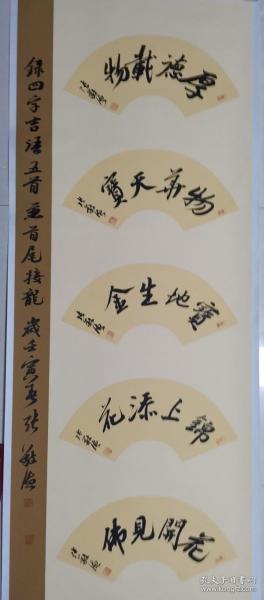 厚德載物
物華天寶
寶地生金
錦上添花
花開見佛
錄四字吉語五首並首尾接龍 歲壬寅春 張